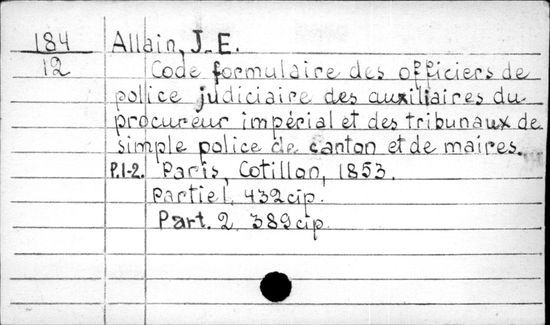 184 Allain, J. E.
12 Code formulaire des officiers de
police judiciaire des auxiliaires du
procureur impérial et des tribunaux de
simple police de canton et de maires.
P.1-2. Paris, Cotillon, 1853.
Partie1. 432 cip.
Part. 2. 389 cip.